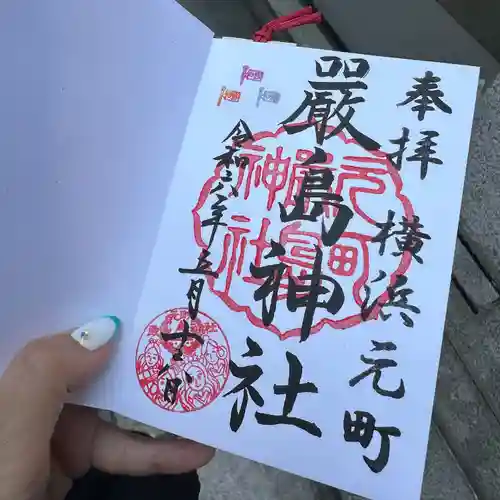 奉拝
横浜元町
嚴島神社
令和六年五月十一日
元町
嚴島
神社